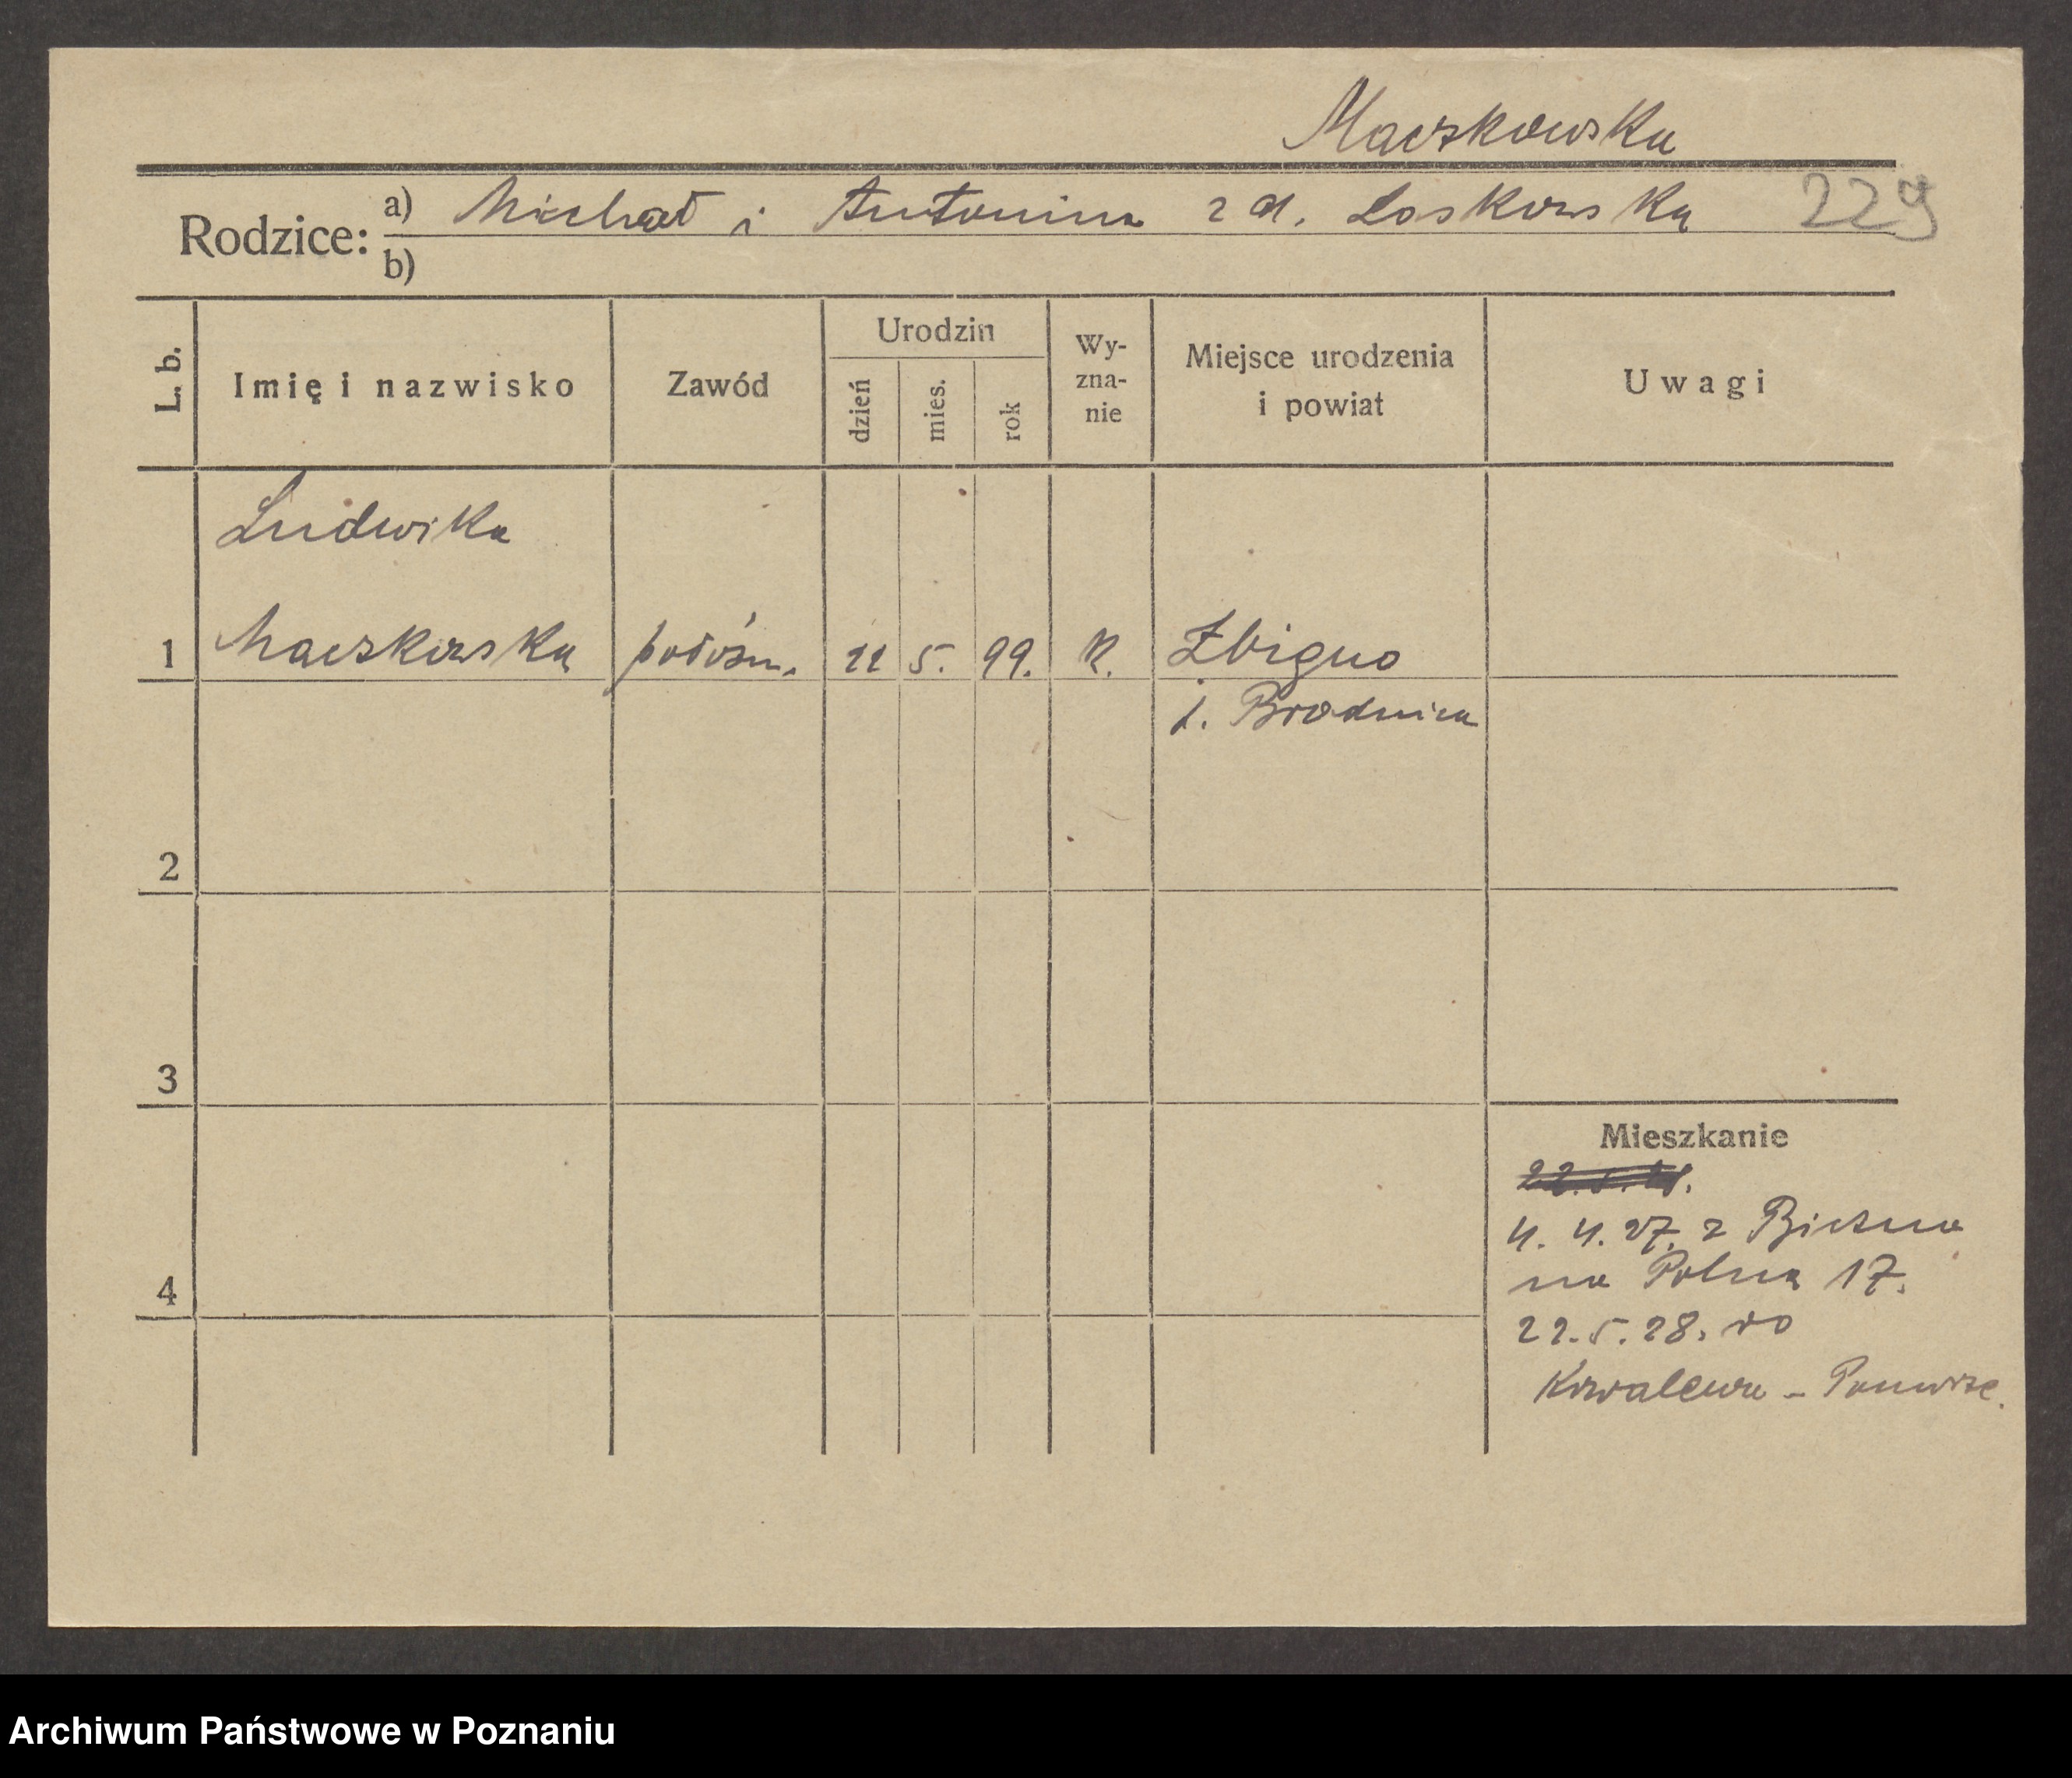 Maczkowska
229
Rodzice: a) Michał i Antonina z d. Laskowska
b)
L. b. Imię i nazwisko Zawód Urodzin dzień mies. rok Wy-zna-nie Miejsce urodzenia i powiat Uwagi
Ludwika
1 Maczkowska położn. 22 5. 99. K. Zbiczno
p. Brodnica
2
3
4
Mieszkanie
4. 4. 27. z
na Polna 17.
22. 5. 28. do
Kowalewa - Pomorze.
Archiwum Państwowe w Poznaniu